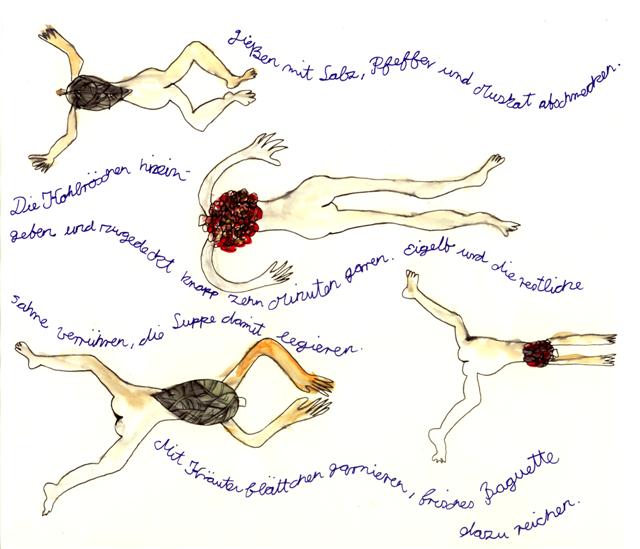 gießen mit Salz, Pfeffer und Muskat abschmecken.
Die Kohlröschen hinein-
geben und zugedeckt knapp zehn Minuten garen. Eigelb und die restliche
Sahne verrühren, die Suppe damit legieren.
Mit Kräuterblättchen garnieren, frisches Baguette
dazu reichen.